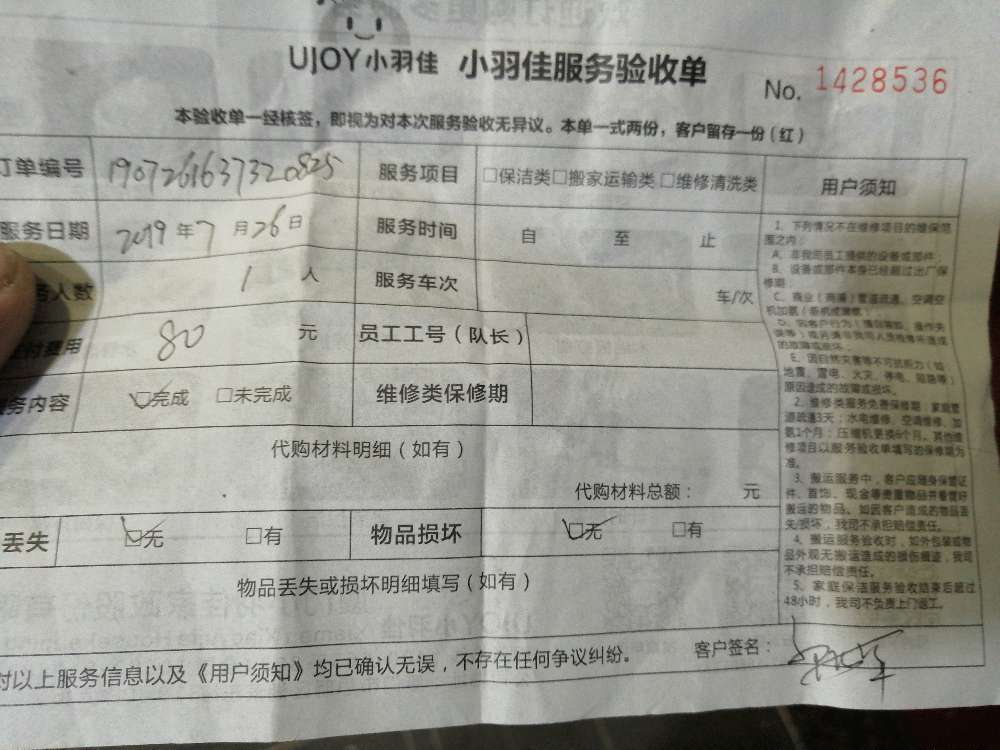 UJOY小羽佳 小羽佳服务验收单 No. 1428536
本验收单一经核签，即视为对本次服务验收无异议。本单一式两份，客户留存一份（红）
订单编号 1907261637320825 服务项目 □保洁类□搬家运输类□维修清洗类 用户须知
服务日期 2019年7月26日 服务时间 自 至 止
务人数 1 人 服务车次 车/次
付费用 80 元 员工工号（队长）
务内容 ☑完成 □未完成 维修类保修期
代购材料明细（如有）
代购材料总额： 元
丢失 ☑无 □有 物品损坏 ☑无 □有
物品丢失或损坏明细填写（如有）
对以上服务信息以及《用户须知》均已确认无误，不存在任何争议纠纷。 客户签名：
1、下列情况不在维修项目的维保范
围之内：
A、非我司员工提供的设备或部件；
B、设备或部件本身已经超过出厂保
修期；
C、商业（商圈）管道疏通、空调空
机加氨
E、因自然灾害等不可抗拒力（如
地震、雷电、火灾、停电、短路等）
原因造成的故障或损坏。
2、维修类服务免费保修期：家庭管
道疏通3天；水电维修、空调维修、加
氨1个月；压缩机更换6个月，其他维
修项目以服务验收单填写的保修期为
准。
3、搬运服务中，客户应随身保管证
件、首饰、现金等贵重物品并看管好
搬运的物品。如因客户造成的物品丢
失/损坏，我司不承担赔偿责任。
4、搬运服务验收时，如外包装或物
品外观无搬运造成的损伤痕迹，我司
不承担赔偿责任。
5、家庭保洁服务验收结束后超过
48小时，我司不负责上门返工。